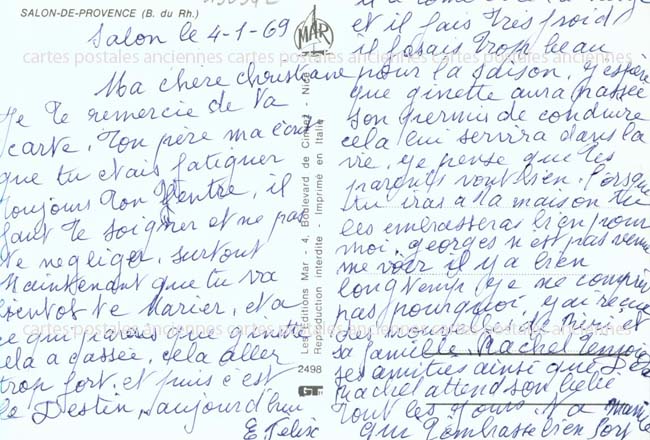 SALON-DE-PROVENCE (B. du Rh.)
Salon le 4-1-69
Ma chere christiane
je te remercie de ta
carte. ton père ma
que tu etais fatiguer
toujours ton ventre, il
faut te soigner et ne pas
te negliger, surtout
maintenant que tu va
bientot te marier, et a
ce que ginette
cela a cassée, cela aller
trop fort, et puis c'est
le Destin, aujourd'hui
E Felix
et il fais tres froid
il faisais trop beau
pour la saison, j'espere
que ginette aura passée
son permis de conduire
cela lui servira dans la
vie, je pense que tes
parents vont bien. lorsque
tu iras a la maison tu
les embrasseras bien pour
moi, georges n'est pas venue
me voir il y a bien
longtemps, je ne comprend
pas pourquoi, j'ai reçue
des et
sa famille, Rachel
ses amities ainsi que
Rachel attend son bebe
tout les jours. Ta mami
qui t'embrasse bien fort
Les Editions Mar - 4, Boulevard de Cimiez - Nice
Reproduction interdite - Imprimé en Italie
MAR
2498
cartes postales anciennes cartes postales anciennes cartes postales anciennes
cartes postales anciennes cartes postales anciennes cartes postales anciennes